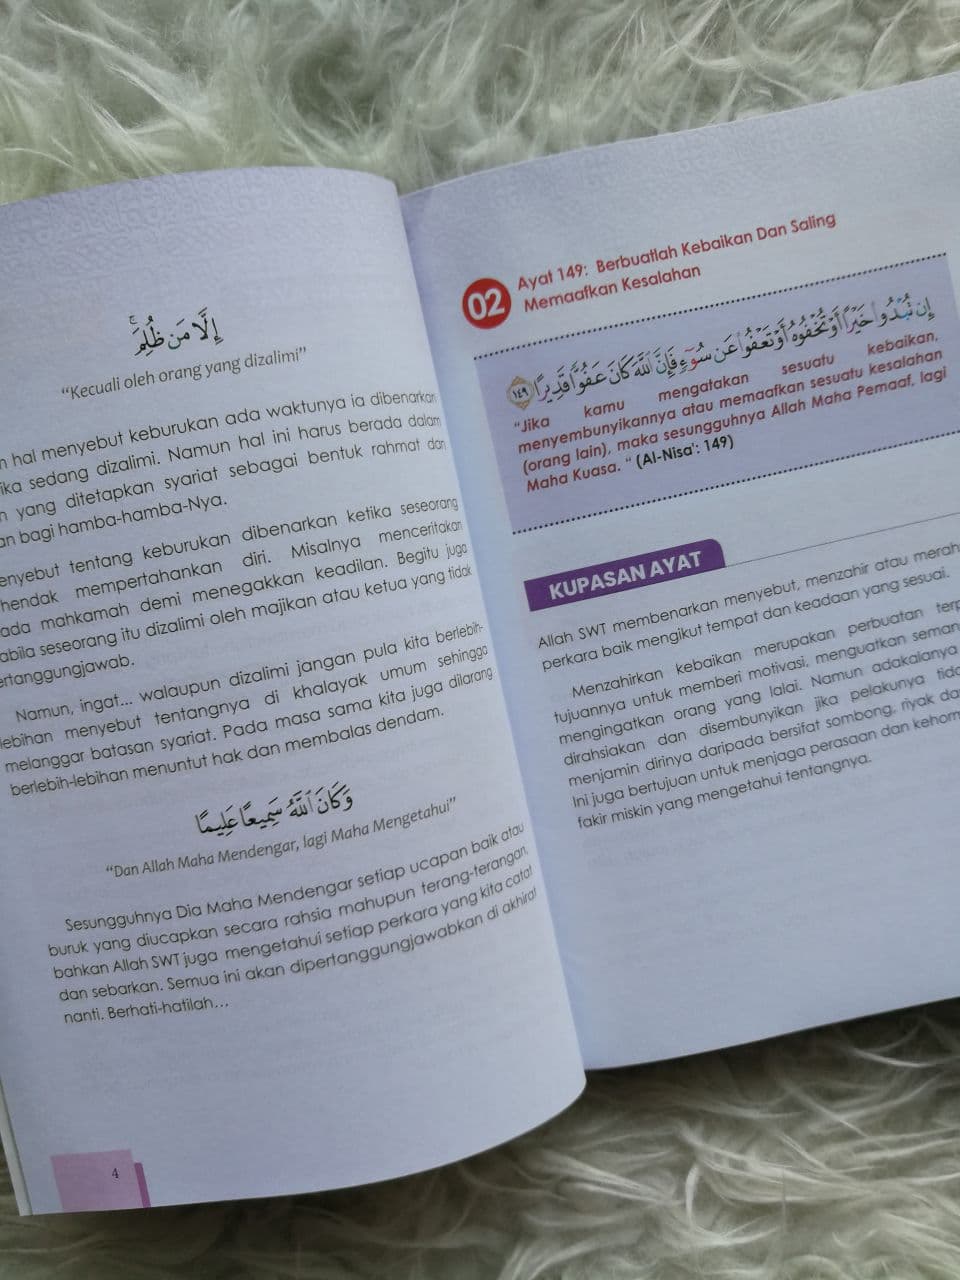 إِلَّا مَن ظُلِمَ ۚ
“Kecuali oleh orang yang dizalimi”
hal menyebut keburukan ada waktunya ia dibenarkan
sedang dizalimi. Namun hal ini harus berada dalam
yang ditetapkan syariat sebagai bentuk rahmat dan
bagi hamba-hamba-Nya.
tentang keburukan dibenarkan ketika seseorang
hendak mempertahankan diri. Misalnya menceritakan
mahkamah demi menegakkan keadilan. Begitu juga
seseorang itu dizalimi oleh majikan atau ketua yang tidak
Namun, ingat... walaupun dizalimi jangan pula kita berlebih-
lebihan menyebut tentangnya di khalayak umum sehingga
melanggar batasan syariat. Pada masa sama kita juga dilarang
berlebih-lebihan menuntut hak dan membalas dendam.
وَكَانَ ٱللَّهُ سَمِيعًا عَلِيمًا
“Dan Allah Maha Mendengar, lagi Maha Mengetahui”
Sesungguhnya Dia Maha Mendengar setiap ucapan baik atau
buruk yang diucapkan secara rahsia mahupun terang-terangan,
bahkan Allah SWT juga mengetahui setiap perkara yang kita catat
dan sebarkan. Semua ini akan dipertanggungjawabkan di akhirat
nanti. Berhati-hatilah...
4
02
Ayat 149: Berbuatlah Kebaikan Dan Saling
Memaafkan Kesalahan
إِن تُبْدُوا۟ خَيْرًا أَوْ تُخْفُوهُ أَوْ تَعْفُوا۟ عَن سُوٓءٍ فَإِنَّ ٱللَّهَ كَانَ عَفُوًّا قَدِيرًا ١٤٩
“Jika kamu mengatakan sesuatu kebaikan,
menyembunyikannya atau memaafkan sesuatu kesalahan
(orang lain), maka sesungguhnya Allah Maha Pemaaf, lagi
Maha Kuasa. “ (Al-Nisa': 149)
KUPASAN AYAT
Allah SWT membenarkan menyebut, menzahir atau
perkara baik mengikut tempat dan keadaan yang sesuai.
Menzahirkan kebaikan merupakan perbuatan
tujuannya untuk memberi motivasi, menguatkan
mengingatkan orang yang lalai. Namun adakalanya
dirahsiakan dan disembunyikan jika pelakunya
menjamin dirinya daripada bersifat sombong, riyak
Ini juga bertujuan untuk menjaga perasaan dan
fakir miskin yang mengetahui tentangnya.